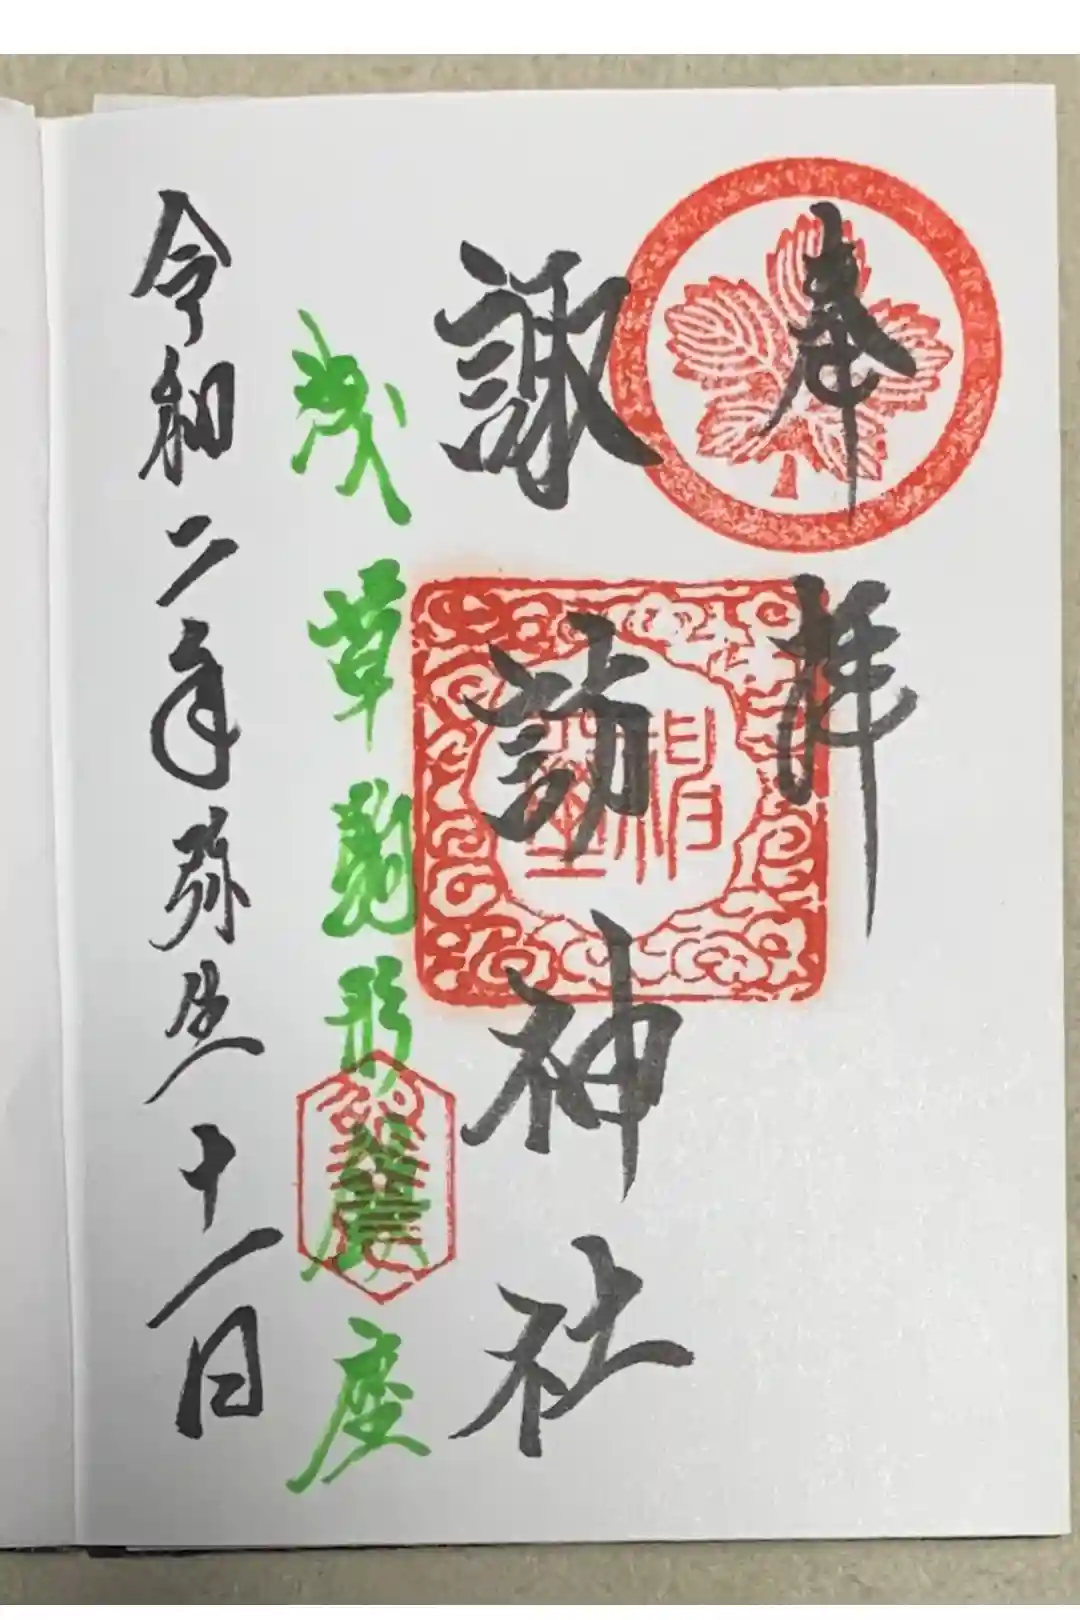 奉拝
諏訪神社
浅草駒形鎮座
令和二年弥生十一日